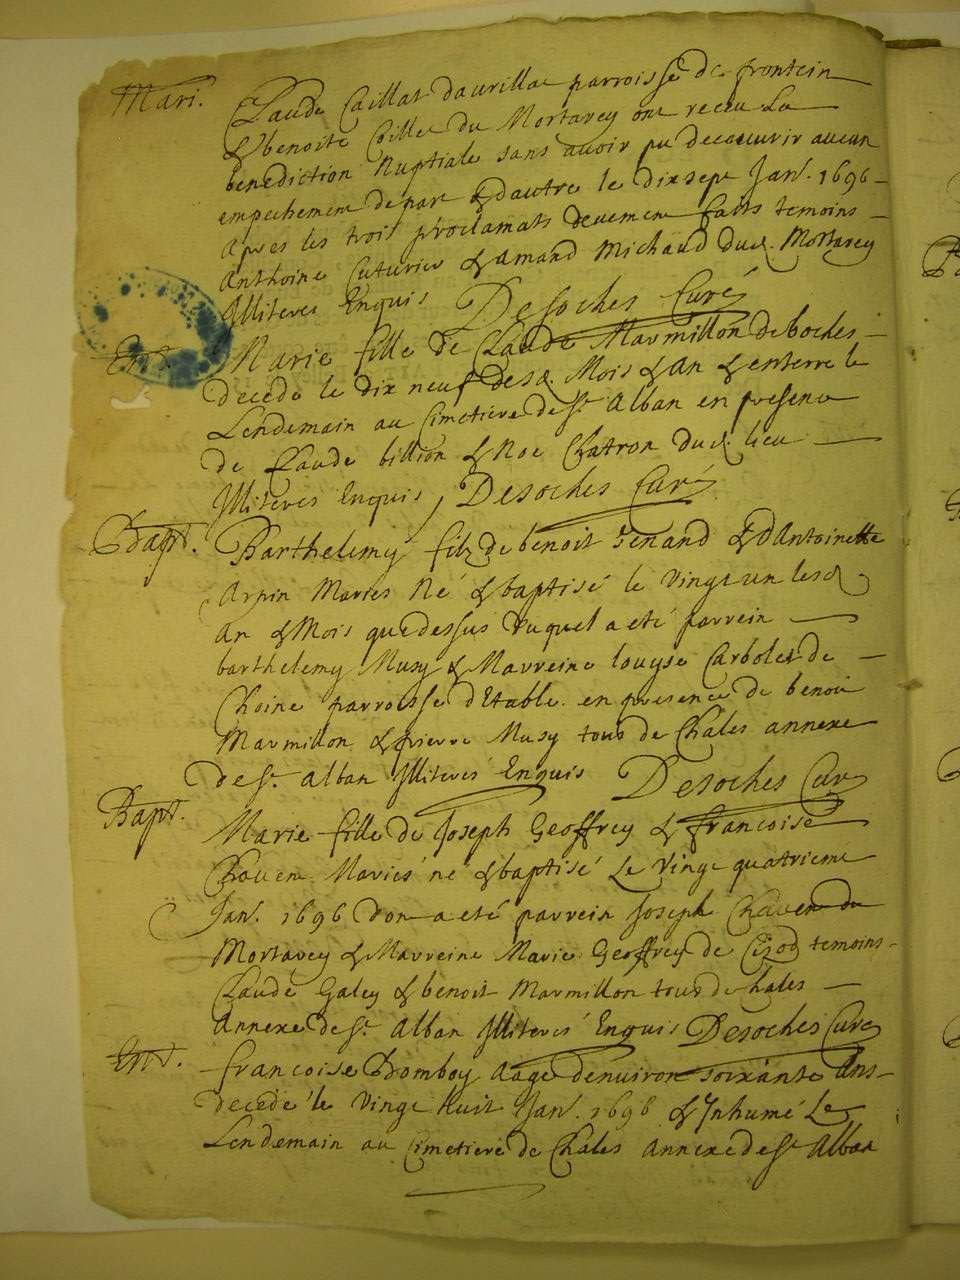 Mari. Claude Caillat daurillac parroisse de frontein
& benoite Coillet du Mortarey ont receu La
benediction Nuptiale sans avoir pu decouvrir aucun
empechement de part & dautre le dixsept Janv. 1696
apres les trois proclamats deuement faits temoins
Anthoine Cuturier & amand Michaud dud. Mortarey
Illiteres Enquis Desoches Curé
Ent. Marie fille de Claude Marmillon de boches
decede le dix neuf desd. Mois & An & enterre le
Lendemain au Cimetiere de St Alban en presence
de Claude billion & Noe Chatron dud. lieu
Illiteres Enquis, Desoches Curé
Bapt. Barthelemy filz de benoit Tenand & dAntoinette
Arpin Maries Né & baptisé le vingt un lesd
An & Mois que dessus duquel a eté parrein
barthelemy Musy & Marreine louyse Carbolet de
Choine parroisse dEtable en presence de benoit
Marmillon & pierre Musy tous de Chales annexe
de St alban Illiteres Enquis Desoches Curé
Bapt. Marie fille de Joseph Geoffrey & francoise
Chaven Mariés né & baptisé Le vingt quatrieme
Janv. 1696 dont a eté parrein Joseph Chaven du
Mortarey & Marreine Marie Geoffrey de Cizod temoins
Claude Galey & benoit Marmillon tous de hales
Annexe de St Alban Illiteres Enquis Desoches Curé
Ent. francoise Bomboy aage denuiron soixante Ans
decede le vingt huit Janv. 1696 & Inhumé Le
Lendemain au Cimetiere de Chales annexe de St Alban